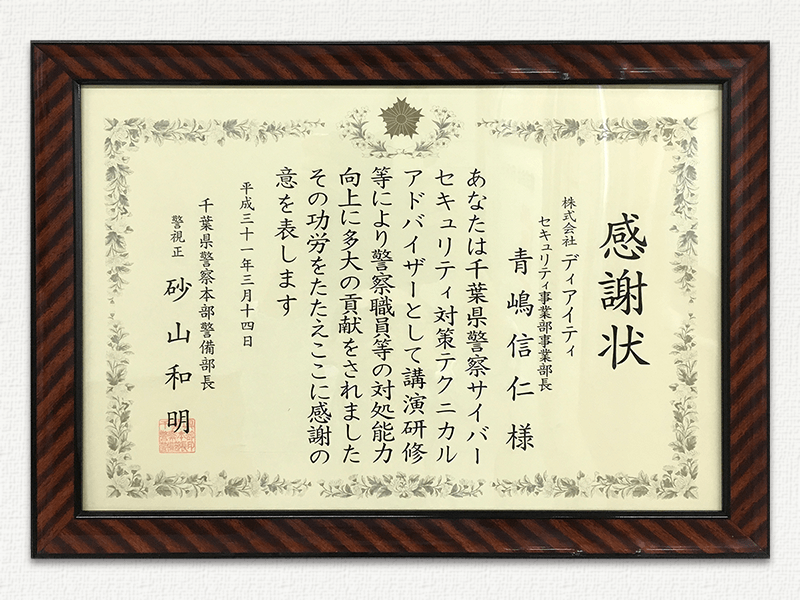 感謝状
株式会社 ディアイティ
セキュリティ事業部事業部長
青嶋信仁様
あなたは千葉県警察サイバー
セキュリティ対策テクニカル
アドバイザーとして講演研修
等により警察職員等の対処能力
向上に多大の貢献をされました
その功労をたたえここに感謝の
意を表します
平成三十一年三月十四日
千葉県警察本部警備部長
警視正 砂山和明